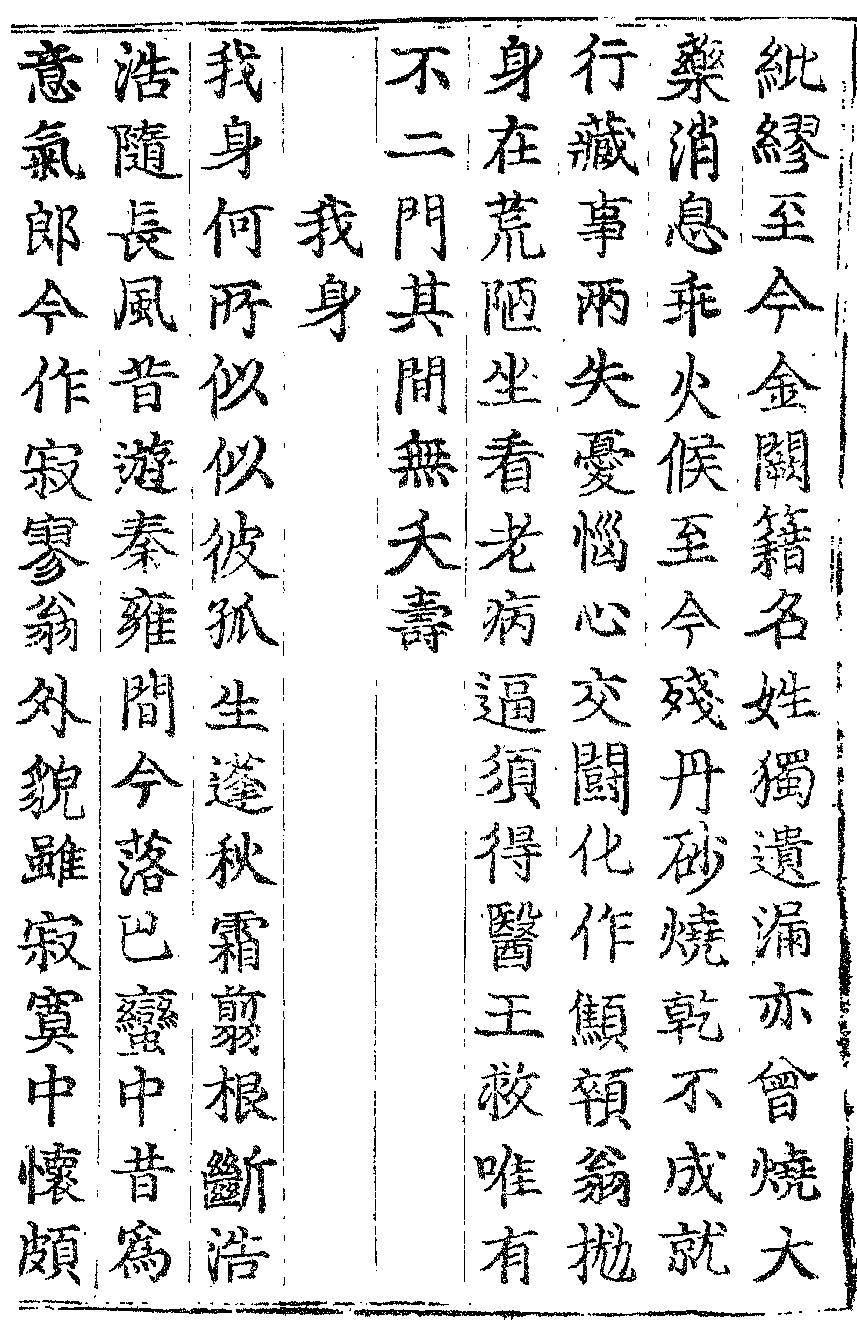 紕繆至今金闕籍名姓獨遺漏亦曾燒大
藥消息乖火候至今殘丹砂燒乾不成就
行藏事兩失憂惱心交鬪化作顦顇翁拋
身在荒陋坐看老病逼須得醫王救唯有
不二門其間無夭壽
我身
我身何所似似彼孤生蓬秋霜翦根斷浩
浩隨長風昔遊秦雍間今落巴蠻中昔爲
意氣郎今作寂寥翁外貌雖寂寞中懷頗